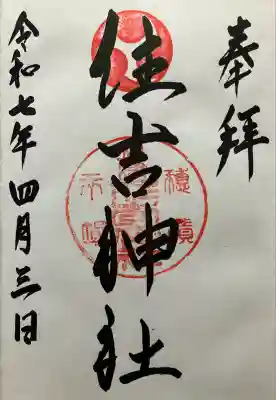 奉拝
住吉神社
令和七年四月三日